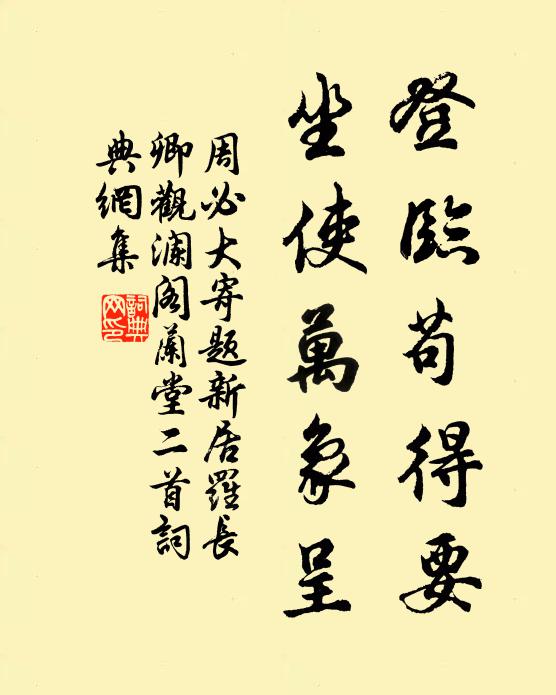 登臨苟得要
坐使萬象呈
周必大寄題新居羅長
卿觀瀾阁蘭堂二首詞
典網集
詞典
网印